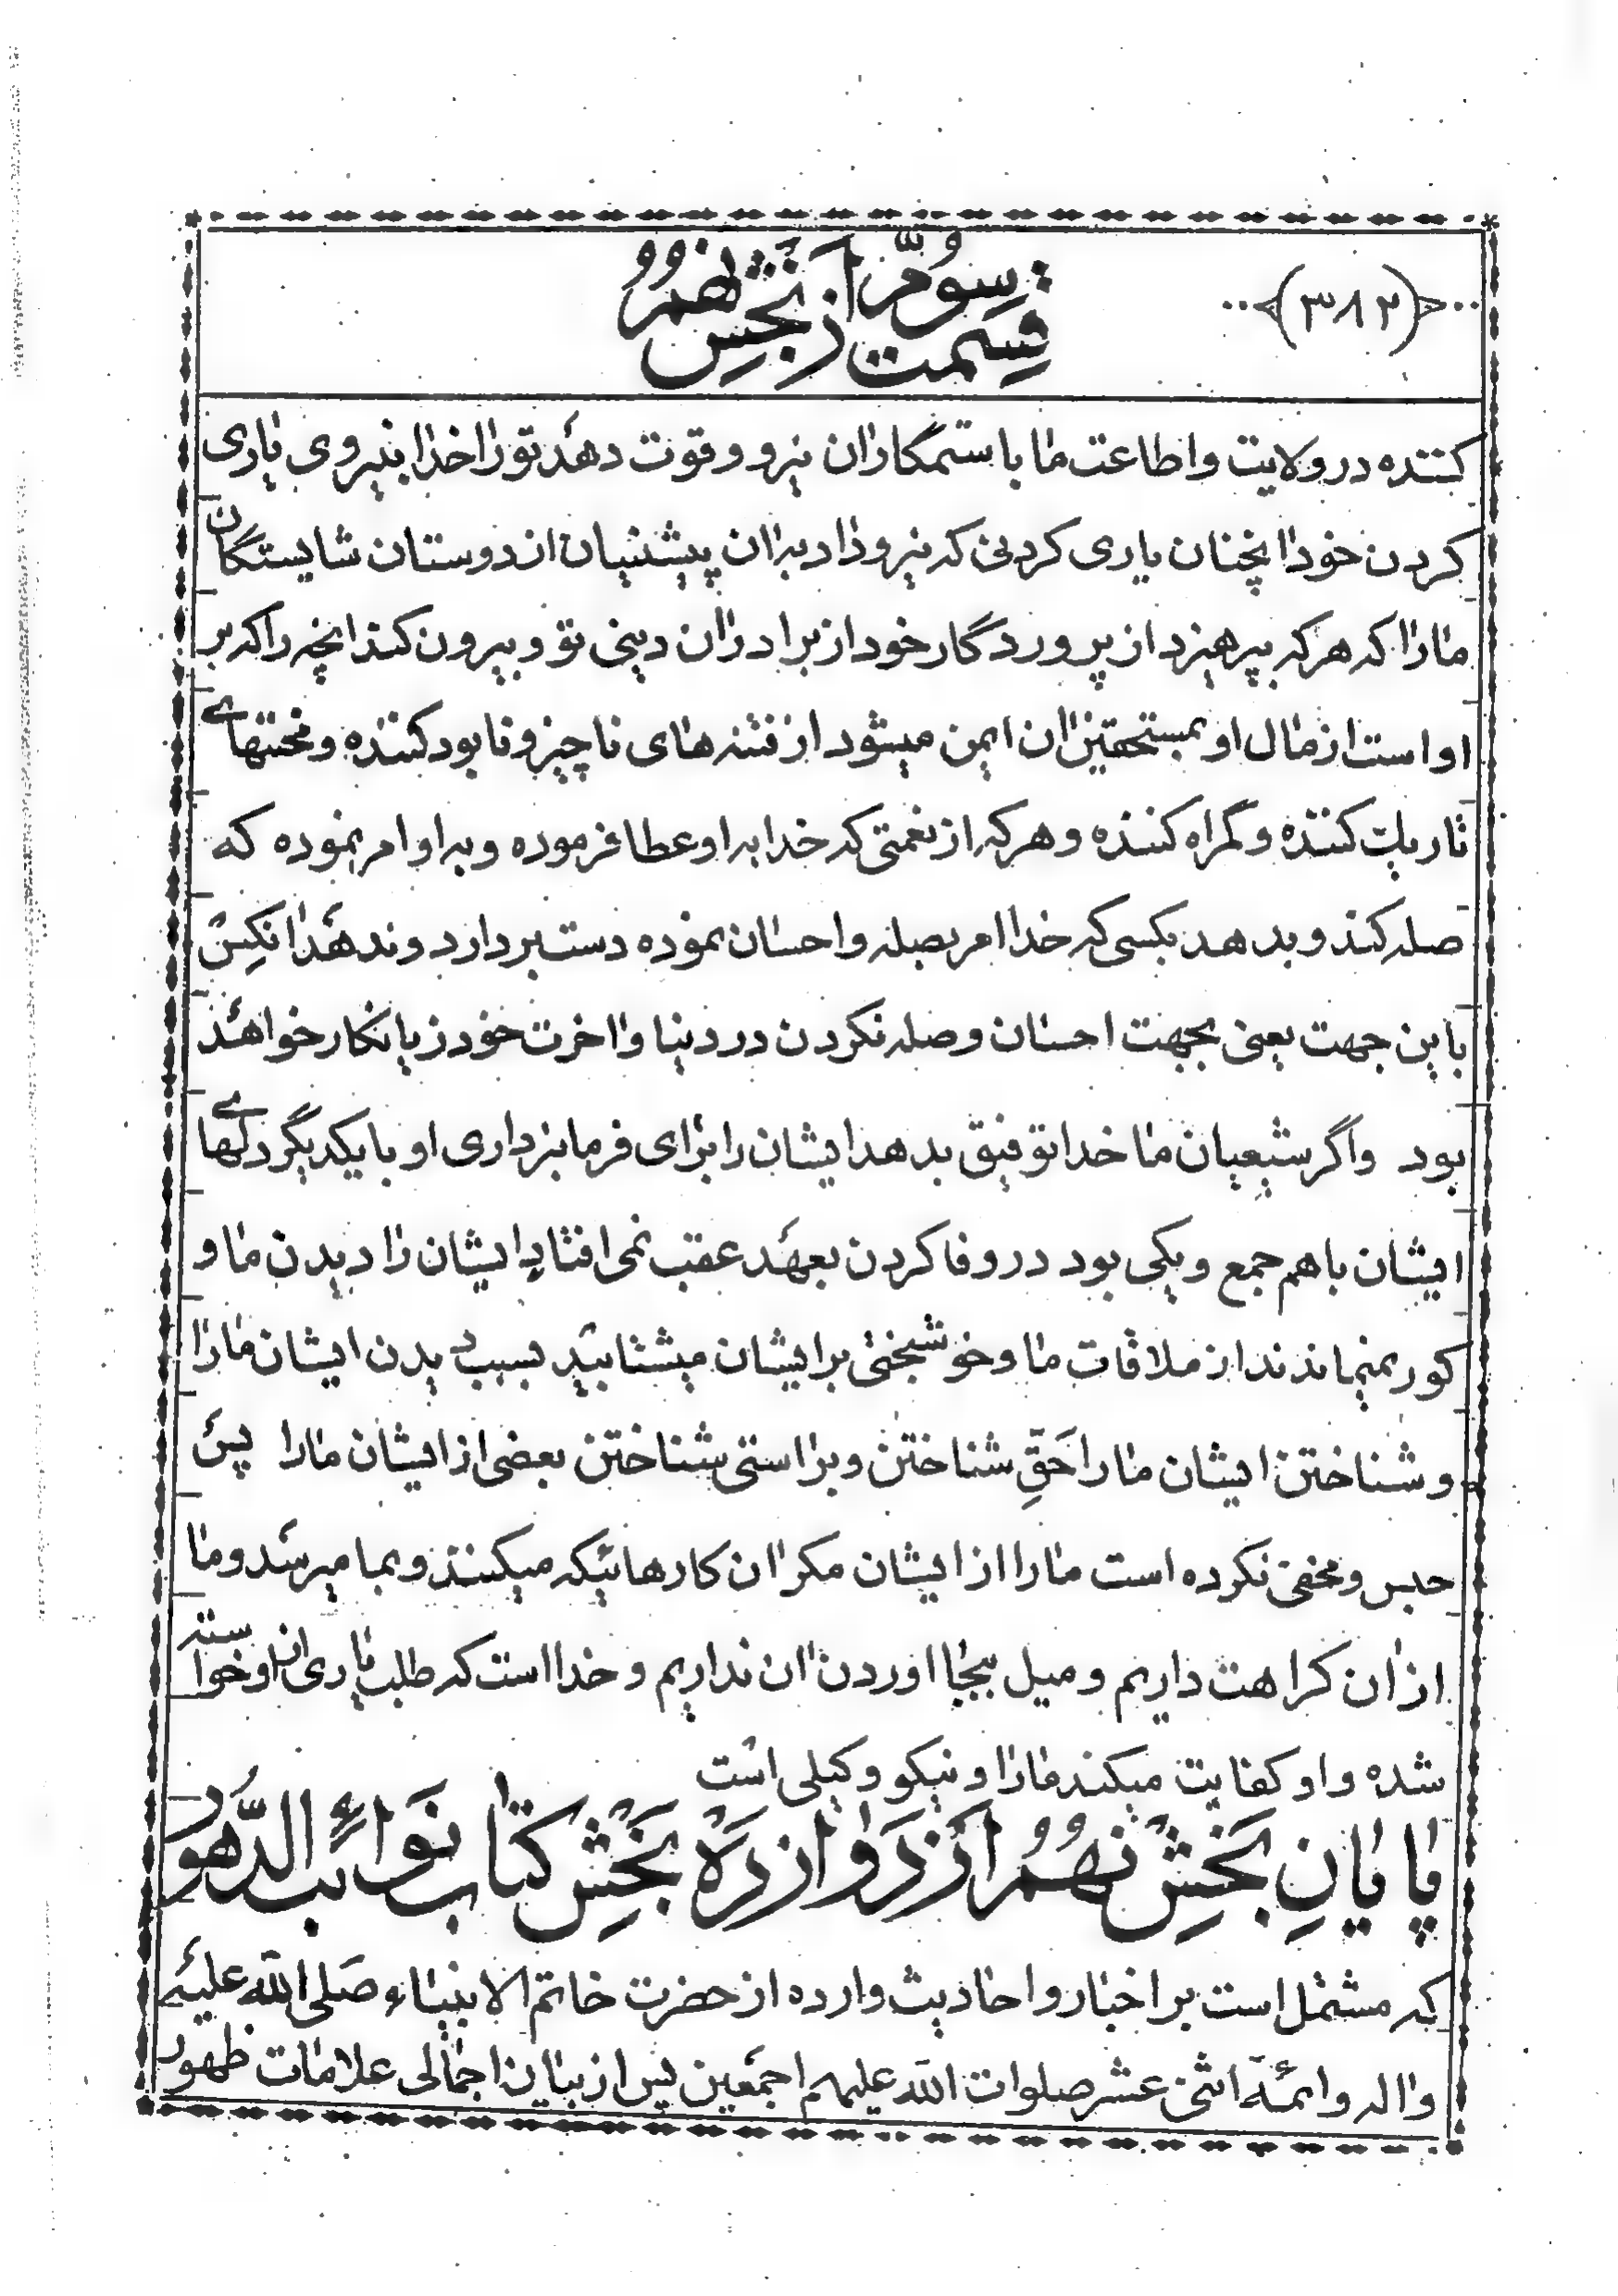 ﴿۳۸۲﴾
قسمت سوّم از بخش نهم
کننده در ولایت و اطاعت ما با ستمکاران نیرو و قوت دهد تو را خدا بنیروی یاری
کردن خود انچنان یاری کردنی که نیرو داد بران پیشنیان از دوستان شایستگان
ما را که هر که بپرهیزد از پروردگار خود از برادران دینی تو و بیرون کند انچه را که بر
او است از مال او بمستحقین ان ایمن میشود از فتنه های ناچیز و نابود کننده و محنتهای
تاریک کننده و گمراه کننده و هر که از نعمتی که خدا به او عطا فرموده و به او امر نموده که
صله کند و بدهد بکسی که خدا امر بصله و احسان نموده دست بردارد و ندهد انکس
باین جهت یعنی بجهت احسان و صله نکردن در دنیا و اخرت خود زیانکار خواهد
بود و اگر شیعیان ما خدا توفیق بدهد ایشان را برای فرمانبرداری او با یکدیگر دلهای
ایشان با هم جمع و یکی بود در وفا کردن بعهد عقب نمی افتاد ایشان را دیدن ما و
کور نمیماندند از ملاقات ما و خوشبختی بر ایشان میشتابید بسبب دیدن ایشان ما را
و شناختن ایشان ما را حَقِّ شناختن و براستی شناختن بعضی از ایشان ما را پس
حبس و مخفی نکرده است ما را از ایشان مکر ان کارهائیکه میکنند و بما میرسد و ما
از ان کراهت داریم و میل بیجا اوردن ان نداریم و خدا است که طلب یاری از او خواسته
شده و او کفایت میکند ما را و نیکو وکیلی است
پایانِ بَخشِ نهُم از دَوازدَه بَخشِ کتاب نَوائِب الدُّهور
که مشتمل است بر اخبار و احادیث وارده از حضرت خاتم الانبیاء صَلی الله علیه
و اله و ائمّه اثنی عشر صلوات الله علیهم اجمَعین پس از بیان اجمالی علامات ظهور